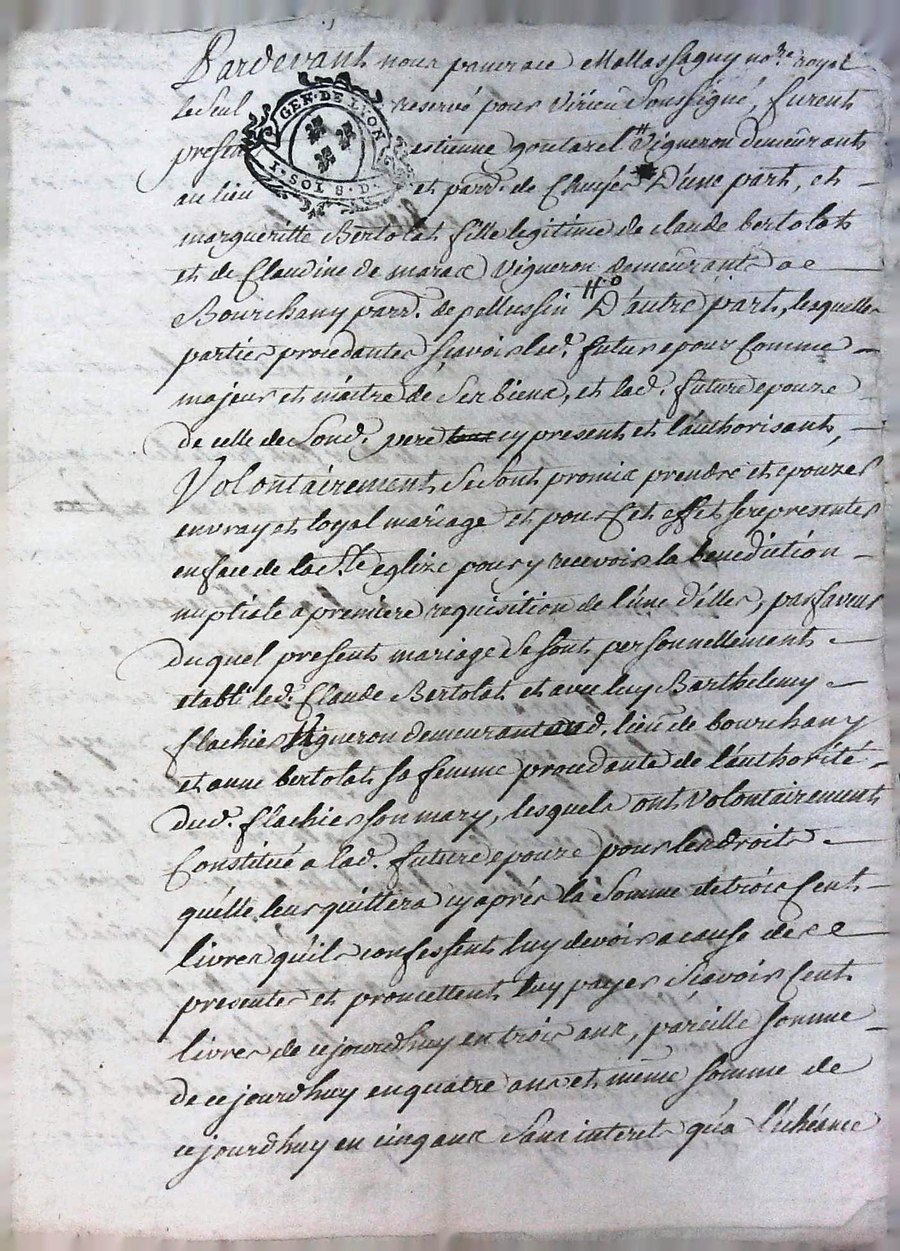 Pardevant nous pancrace Mallassagny no.re royal
le seul reservé pour virieu soussigné, furent
GEN. DE LION
I. SOL 8. D.
presents estienne goutarel Vigneron demeurants
au lieu et parr. de Chuyer D'une part, et
margueritte Bertolat fille legitime de claude bertolat
et de Claudine de marac vigneron demeurants a
Bourchany parr. de pellussin D'autre part, lesquelles
parties procedantes sçavoir led. futur epour comme
majeur et maitre de ses biens, et lad. future epouze
de celle de sond. pere cy present et l'authorisant,
Volontairement se sont promis prendre et epouzer
en vray et loyal mariage et pour cet effet se representer
en face de la S.te eglize pour y recevoir la benediction
nuptiale a premiere requisition de l'une d'elles, par faveur
duquel present mariage se sont personnellement
etabli led. Claude Bertolat et avec luy Barthelemy
flachier Vigneron demeurant aud. lieu de bourchany
et anne bertolat sa femme procedante de l'authorité
dud. flachier son mary, lesquels ont volontairement
Constitué a lad. future epouze pour les droits
qu'elle leur quittera cy après la somme de trois cent
livres qu'ils confessent luy devoir a cause de ce
presente et promettent luy payer sçavoir cent
livres de cejourdhuy en trois ans, pareille somme
de cejourdhuy en quatre ans et meme somme de
cejourdhuy en cinq ans sans interet qu'a l'echéance